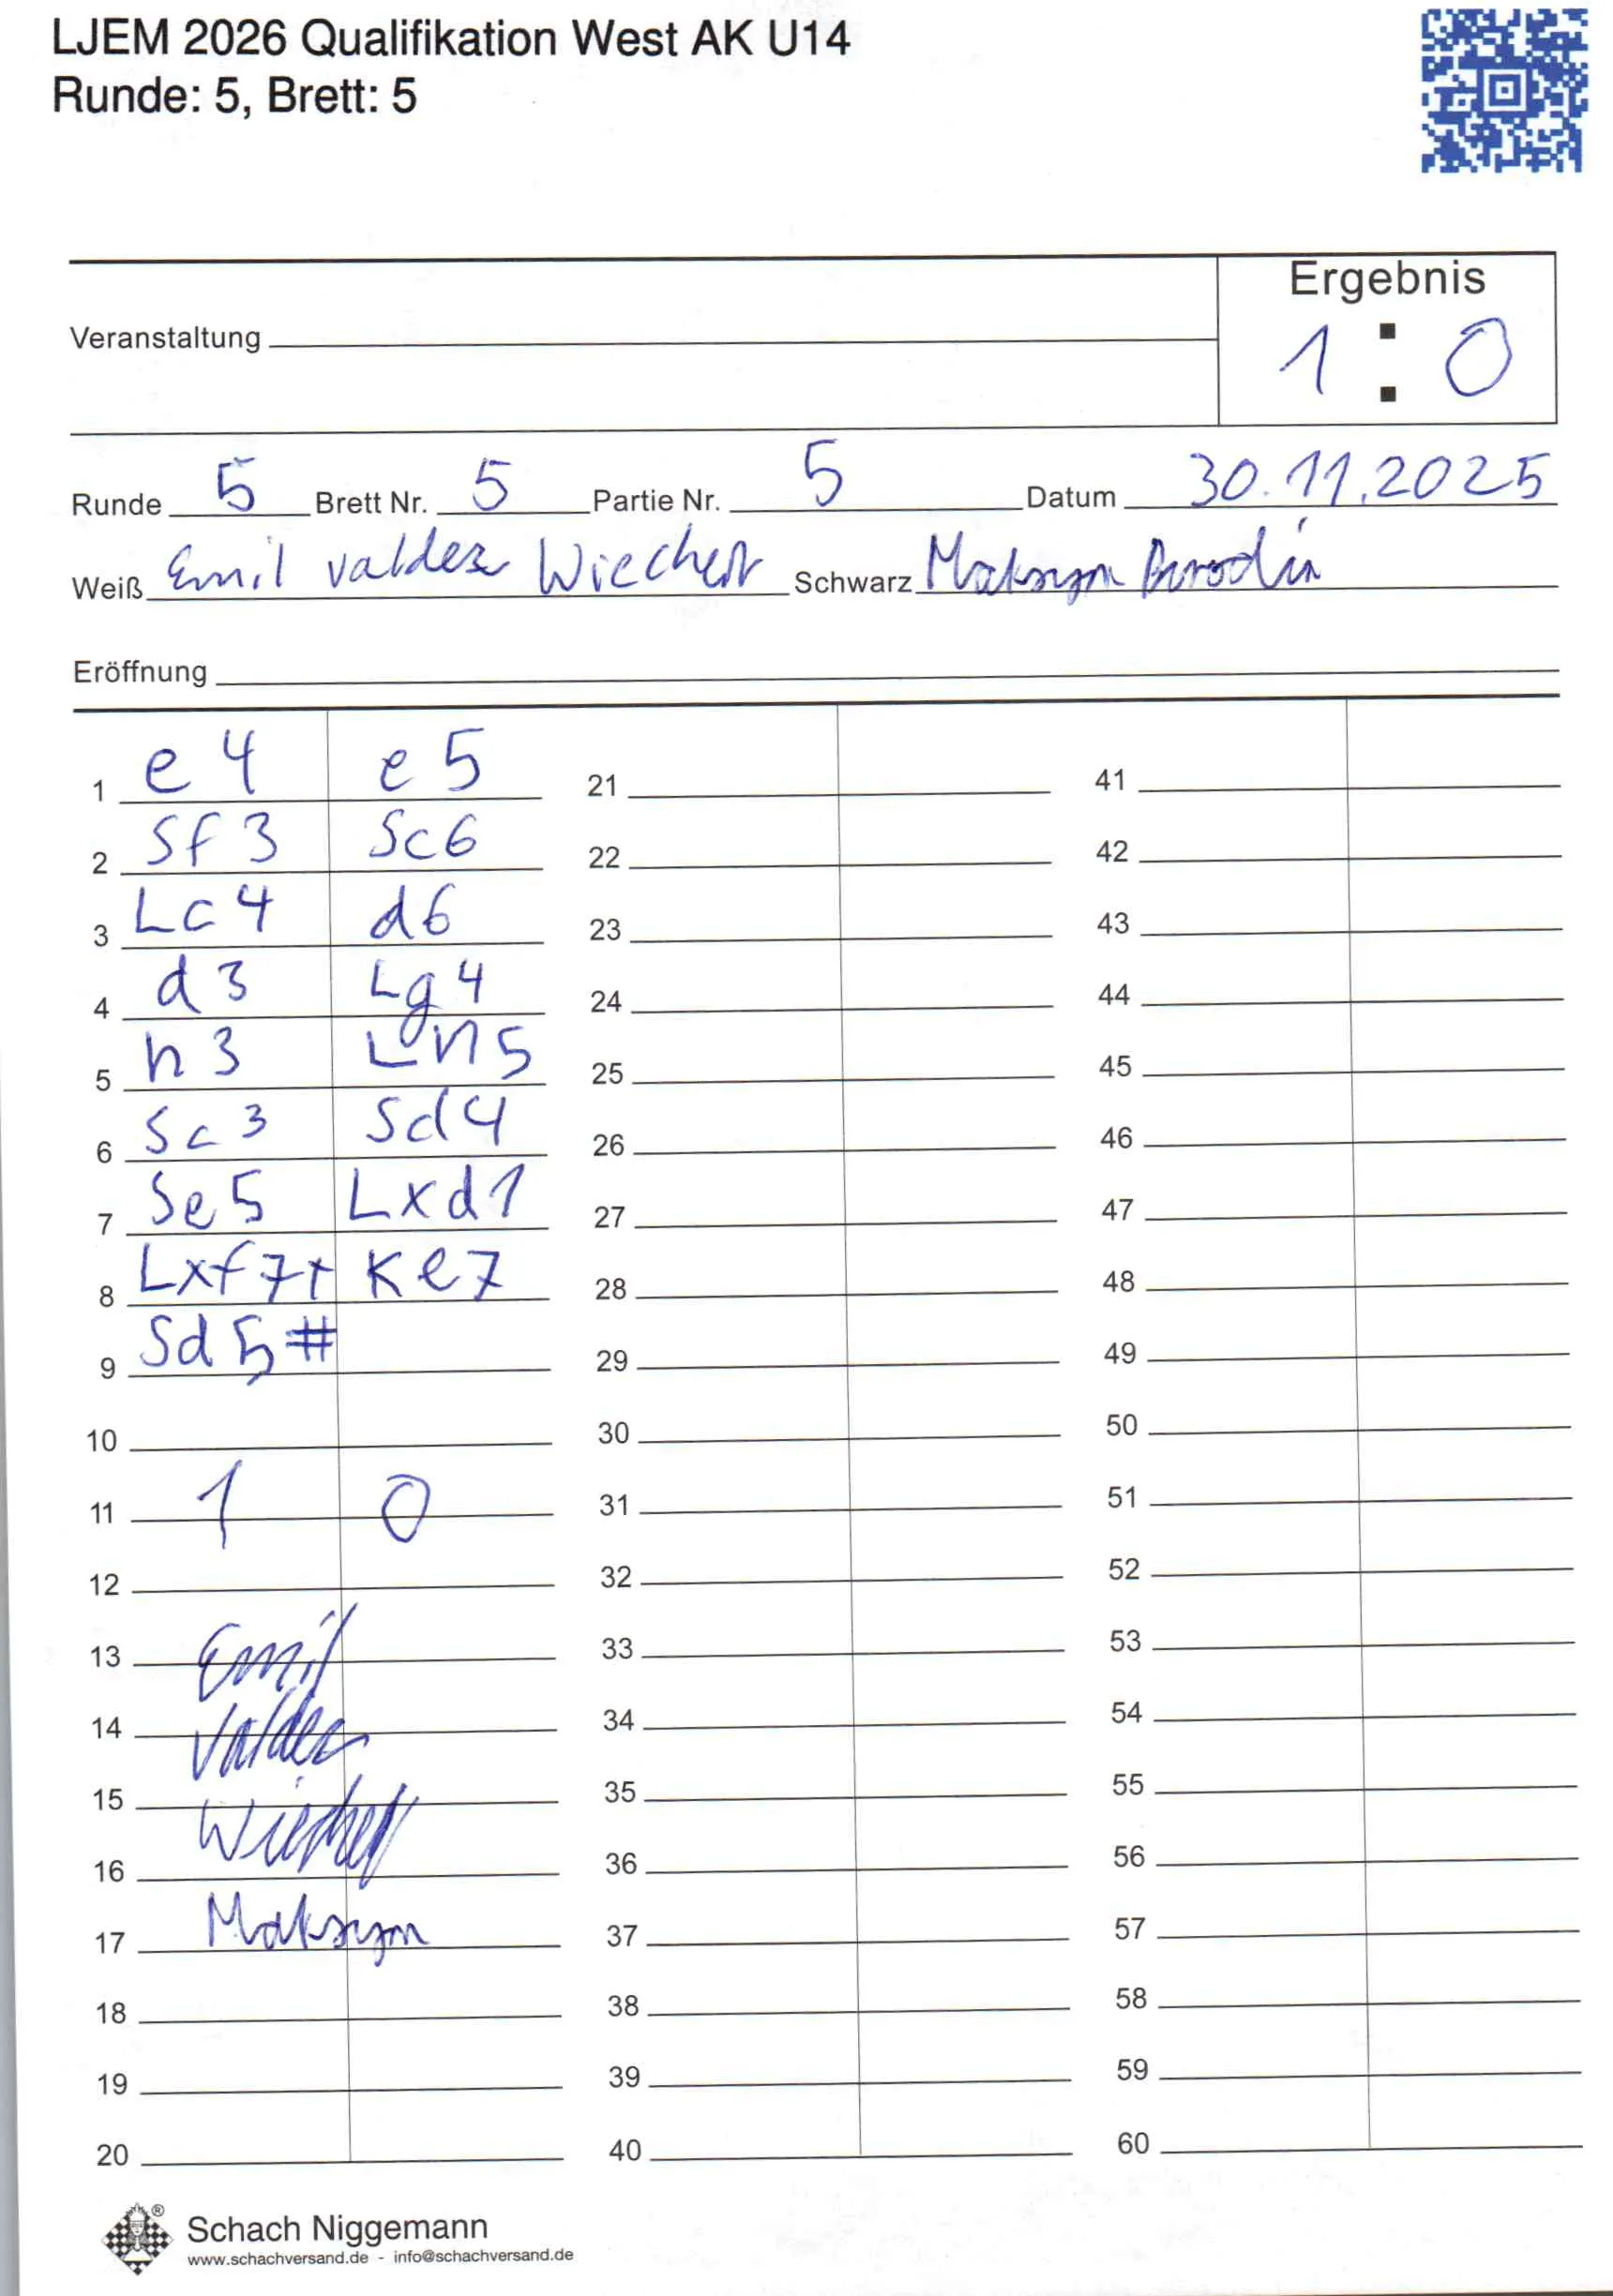 LJEM 2026 Qualifikation West AK U14
Runde: 5, Brett: 5
Ergebnis
Veranstaltung
1 : 0
Runde 5 Brett Nr. 5 Partie Nr. 5 Datum 30.11.2025
Weiß Emil Valdez Wiechert Schwarz Maksym Borodin
Eröffnung
1 e4 e5 21 41
2 Sf3 Sc6 22 42
3 Lc4 d6 23 43
4 d3 Lg4 24 44
5 h3 Lh5 25 45
6 Sc3 Sd4 26 46
7 Se5 Lxd1 27 47
8 Lxf7+ Ke7 28 48
9 Sd5# 29 49
10 30 50
11 1 0 31 51
12 32 52
13 Emil 33 53
14 Valdez 34 54
15 35 55
Wiechert
16 36 56
17 Maksym 37 57
18 38 58
19 39 59
20 40 60
® Schach Niggemann
www.schachversand.de - info@schachversand.de